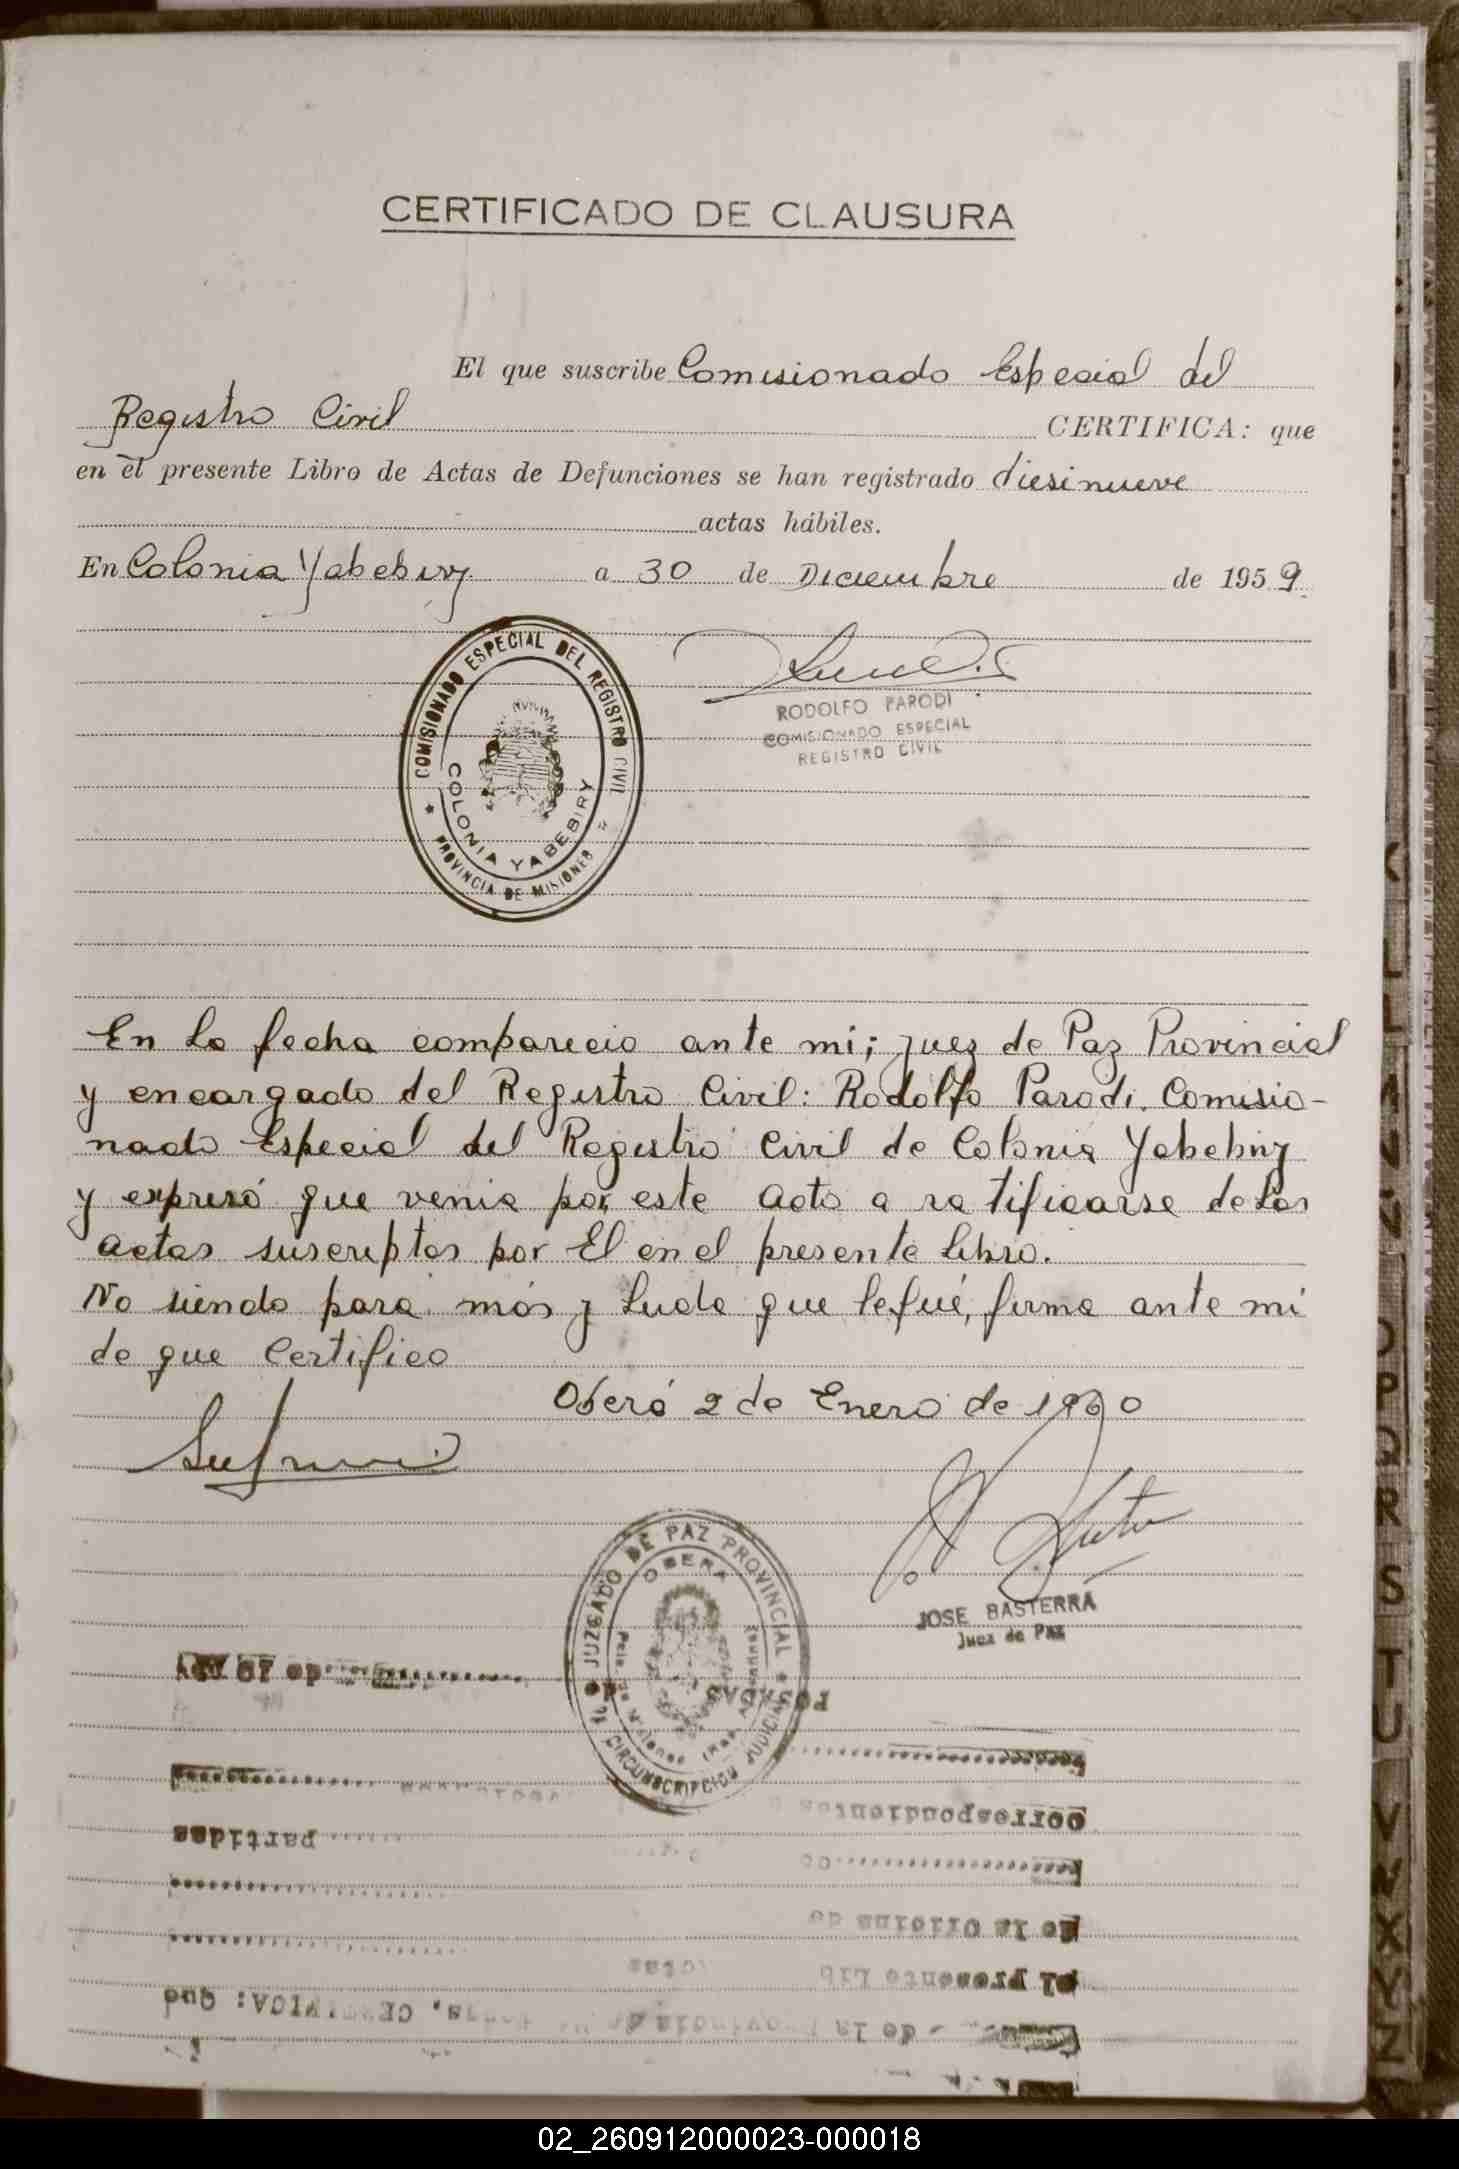 CERTIFICADO DE CLAUSURA
El que suscribe Comisionado Especial del
Registro Civil CERTIFICA: que
en el presente Libro de Actas de Defunciones se han registrado diesinueve
actas hábiles.
En Colonia Yabebiry a 30 de Diciembre de 1959.
COMISIONADO ESPECIAL DEL REGISTRO CIVIL
COLONIA YABEBIRY
PROVINCIA DE MISIONES
RODOLFO PARODI
COMISIONADO ESPECIAL
REGISTRO CIVIL
En la fecha comparecio ante mi; juez de Paz Provincial
y encargado del Registro Civil: Rodolfo Parodi. Comisio-
nado Especial del Registro Civil de Colonia Yabebiry
y expresó que venia por este acto a ratificarse de las
actas suscriptas por El en el presente libro.
No siendo para más y leida que le fué, firma ante mi
de que Certifico
Oberá 2 de Enero de 1960
JUZGADO DE PAZ PROVINCIAL
OBERA
CIRCUNSCRIPCION JUDICIAL
JOSE BASTERRA
Juez de Paz
de 19
POSADAS de
correspondientes
partidas
de la Oficina de
el presente Lib
de la Provincia de CERTIFICA: Que
K
L
LL
M
N
Ñ
O
P
Q
R
S
T
U
V
W
X
Y
Z
02_260912000023-000018